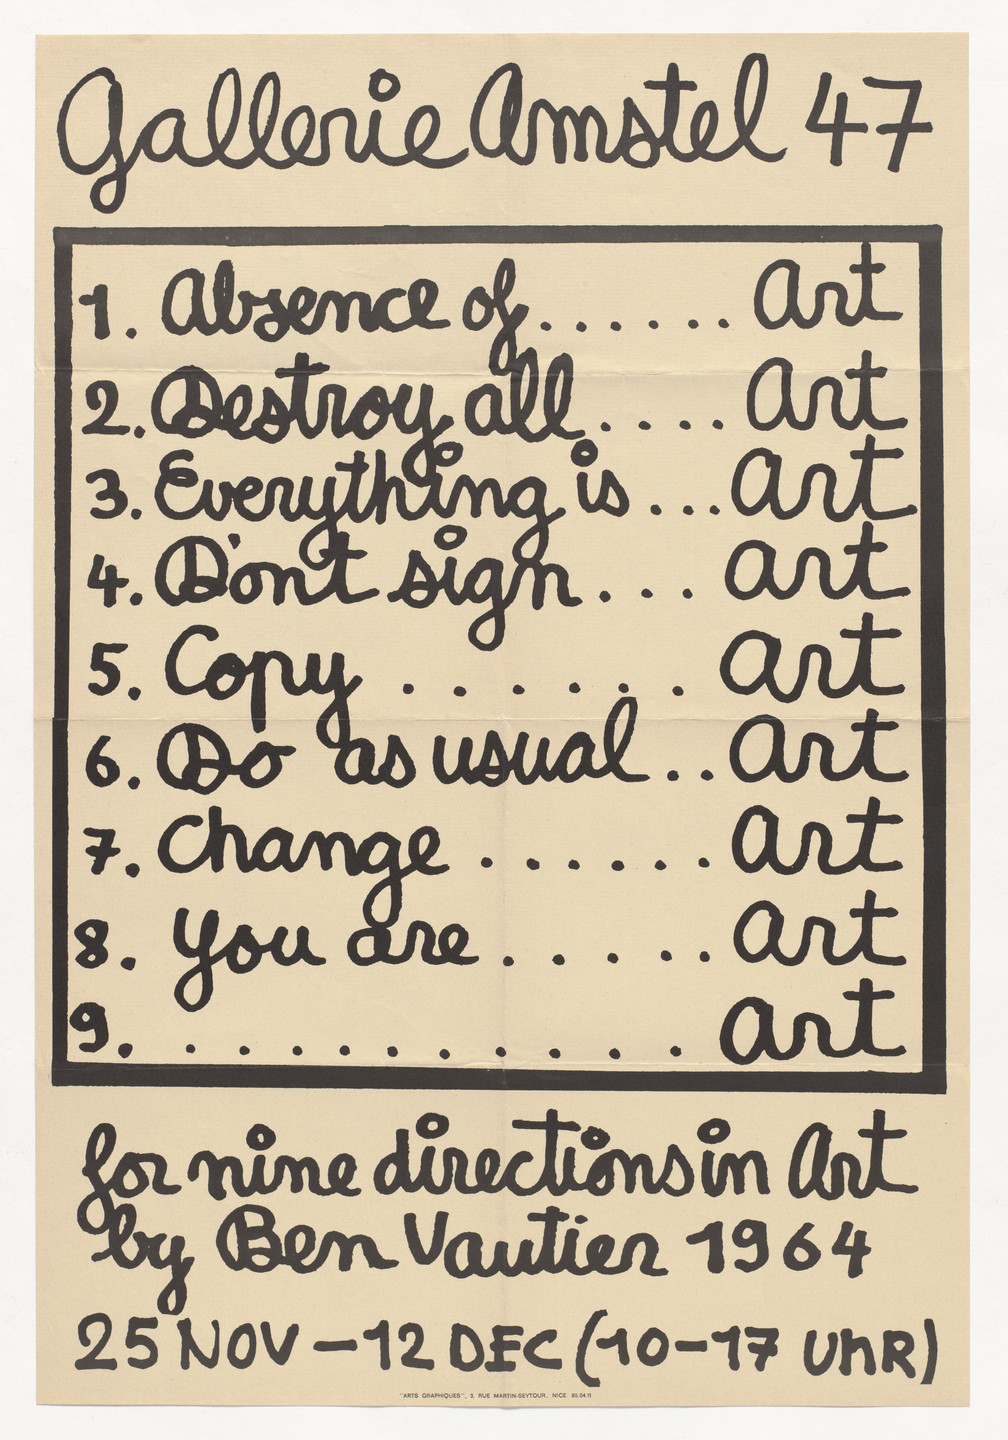 Gallerie Amstel 47
1. Absence of...... Art
2. Destroy all.... Art
3. Everything is... Art
4. D'ont sign... Art
5. Copy ...... Art
6. Do as usual.. Art
7. Change ...... Art
8. You are ..... Art
9. ........... Art
for nine directions in Art
by Ben Vautier 1964
25 NOV – 12 DEC (10–17 UHR)
"ARTS GRAPHIQUES", 3, RUE MARTIN-SEYTOUR, NICE 85.04.11